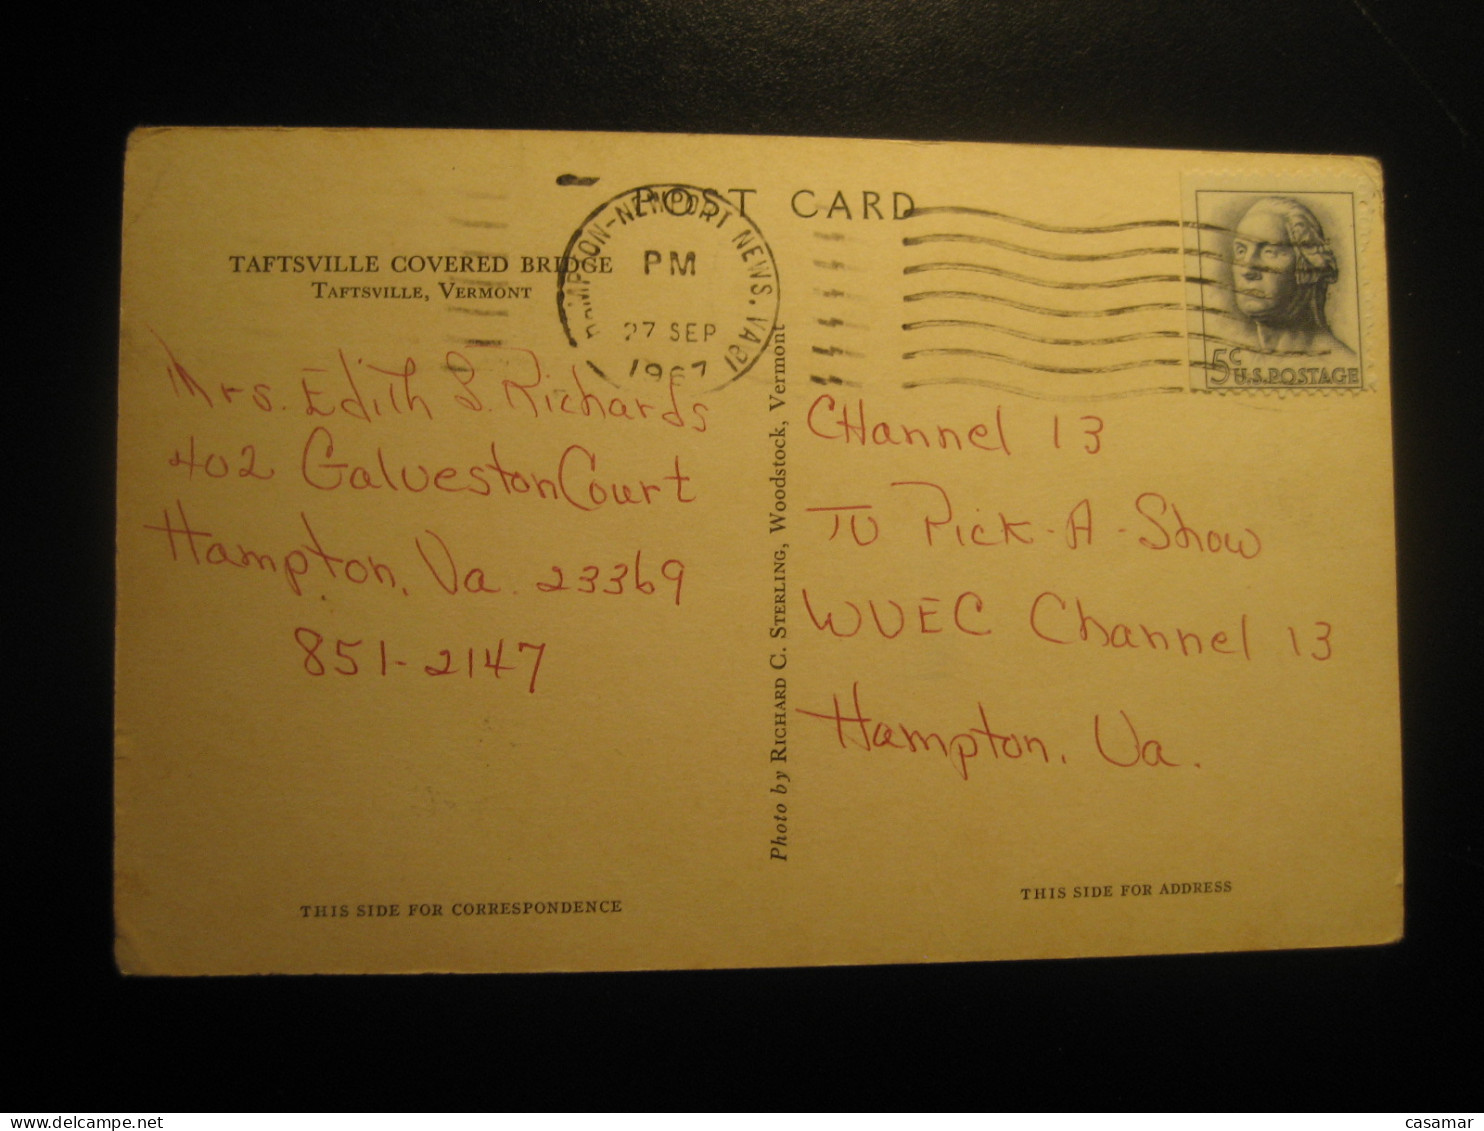 POST CARD
TAFTSVILLE COVERED BRIDGE
TAFTSVILLE, VERMONT
PM
27 SEP
1967
5c
U.S. POSTAGE
Mrs. Edith S. Richards
402 Galveston Court
Hampton, Va. 23369
851-2147
Photo by RICHARD C. STERLING, Woodstock, Vermont
CHannel 13
TV Pick-A-Show
WVEC Channel 13
Hampton, Va.
THIS SIDE FOR CORRESPONDENCE
THIS SIDE FOR ADDRESS
casamar